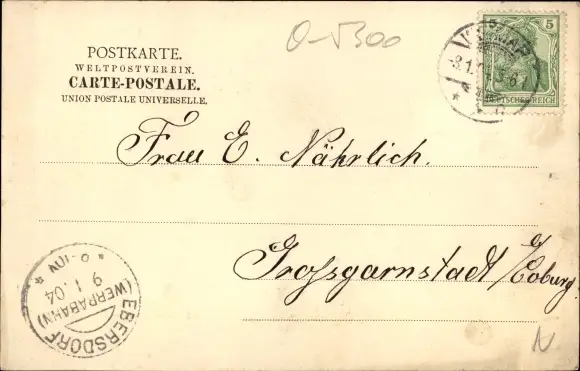 O-5300
POSTKARTE.
WELTPOSTVEREIN.
CARTE-POSTALE.
UNION POSTALE UNIVERSELLE.
5
DEUTSCHES REICH
Frau E. Nährlich.
Grossgarnstadt/Coburg.
EBERSDORF
(WERRABAHN)
9 1. 04
N